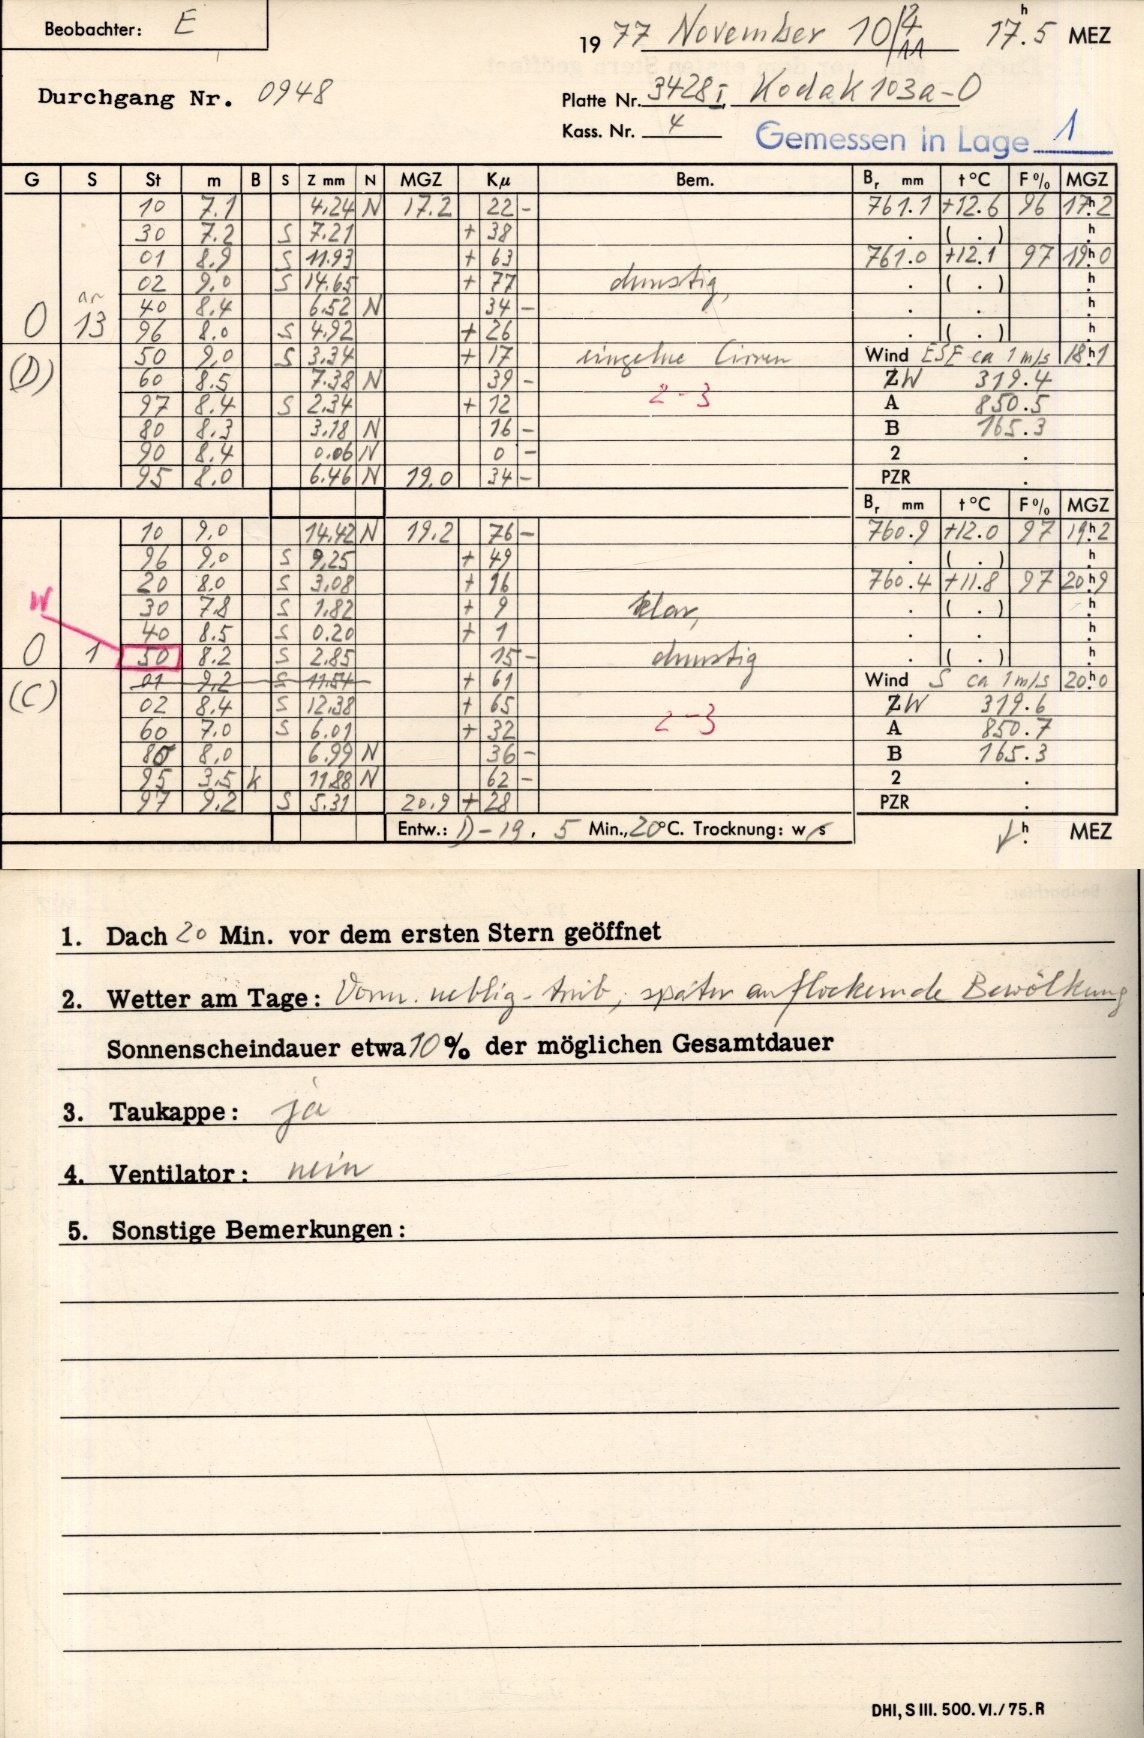 Beobachter: E
19 77 November 10/11 17h.5 MEZ
Durchgang Nr. 0948
Platte Nr. 3428 I, Kodak 103a-O
Kass. Nr. 4 Gemessen in Lage 1
G S St m B S Z mm N MGZ Kμ Bem. Br mm t°C F% MGZ
10 7.1 4.24 N 17.2 22 - 761.1 +12.6 96 17h2
30 7.2 S 7.21 + 38 . ( . ) h
01 8.9 S 11.93 + 63 761.0 +12.1 97 19h0
02 9.0 S 14.65 + 77 dunstig, . ( . ) h
ar
40 8.4 6.52 N 34 - . . h
O 13 96 8.0 S 4.92 + 26 . ( . ) h
(D) 50 9.0 S 3.34 + 17 einzelne Cirren Wind ESE ca 1 m/s 18h1
60 8.5 7.38 N 39 - ZW 319.4
97 8.4 S 2.34 + 12 2-3 A 850.5
80 8.3 3.18 N 16 - B 165.3
90 8.4 0.06 N 0 - 2 .
95 8.0 6.46 N 19.0 34 - PZR .
Br mm t°C F% MGZ
10 9.0 14.42 N 19.2 76 - 760.9 +12.0 97 19h2
96 9.0 S 9.25 + 49 . ( . ) h
20 8.0 S 3.08 + 16 760.4 +11.8 97 20h9
W 30 7.8 S 1.82 + 9 klar, . ( . ) h
40 8.5 S 0.20 + 1 . . h
O 1 50 8.2 S 2.85 15 - dunstig . ( . ) h
(C) 01 9.2 S 11.54 + 61 Wind S ca 1 m/s 20h0
02 8.4 S 12.38 + 65 ZW 319.6
60 7.0 S 6.01 + 32 2-3 A 850.7
80 8.0 6.99 N 36 - B 165.3
95 3.5 k 11.88 N 62 - 2 .
97 9.2 S 5.31 20.9 + 28 PZR .
Entw.: D-19. 5 Min., 20°C. Trocknung: w/s h. MEZ
1. Dach 20 Min. vor dem ersten Stern geöffnet
2. Wetter am Tage: Vorm. neblig-trüb, später auflockernde Bewölkung
Sonnenscheindauer etwa 10% der möglichen Gesamtdauer
3. Taukappe: ja
4. Ventilator: nein
5. Sonstige Bemerkungen:
DHI, S III. 500. VI./75. R